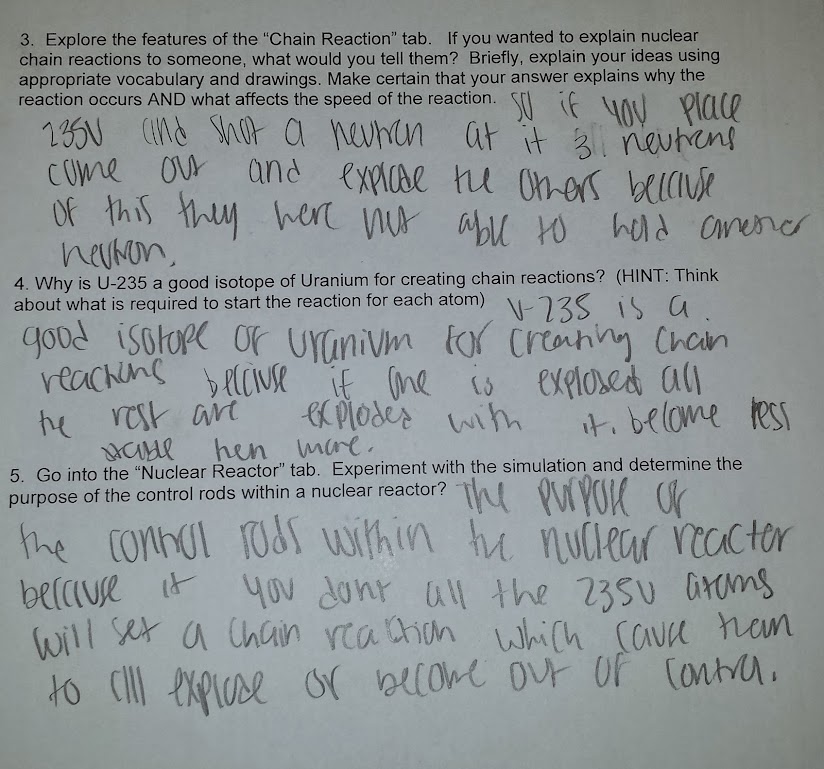 3. Explore the features of the "Chain Reaction" tab. If you wanted to explain nuclear
chain reactions to someone, what would you tell them? Briefly, explain your ideas using
appropriate vocabulary and drawings. Make certain that your answer explains why the
reaction occurs AND what affects the speed of the reaction. So if you place
235U and shot a neutron at it 3 neutrons
come out and explode the others because
of this they were not able to hold another
neutron.
4. Why is U-235 a good isotope of Uranium for creating chain reactions? (HINT: Think
about what is required to start the reaction for each atom) U-235 is a
good isotope of Uranium for creating chain
reactions because if one is exploded all
the rest are explodes with it. become less
stable hen more.
5. Go into the "Nuclear Reactor" tab. Experiment with the simulation and determine the
purpose of the control rods within a nuclear reactor? The purpose of
the control rods within the nuclear reactor
because if you dont all the 235U atoms
will set a chain reaction which cause them
to all explode or become out of control.